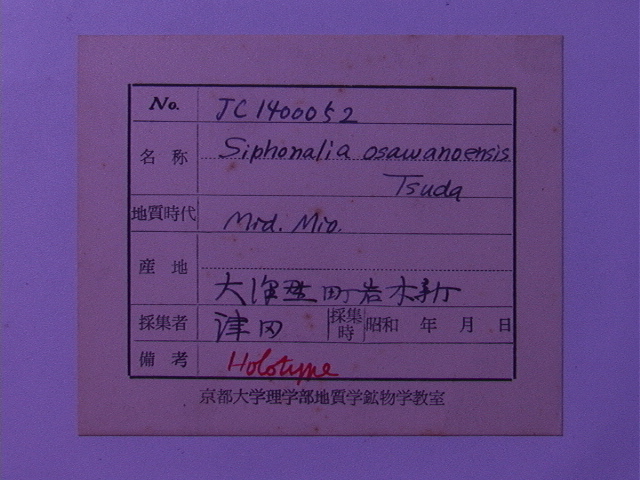 No. JC1400052
名称 Siphonalia osawanoensis
Tsuda
地質時代 Mid. Mio.
産地
大沢野町岩木新
採集者 津田 採集時 昭和 年 月 日
備考 Holotype
京都大学理学部地質学鉱物学教室